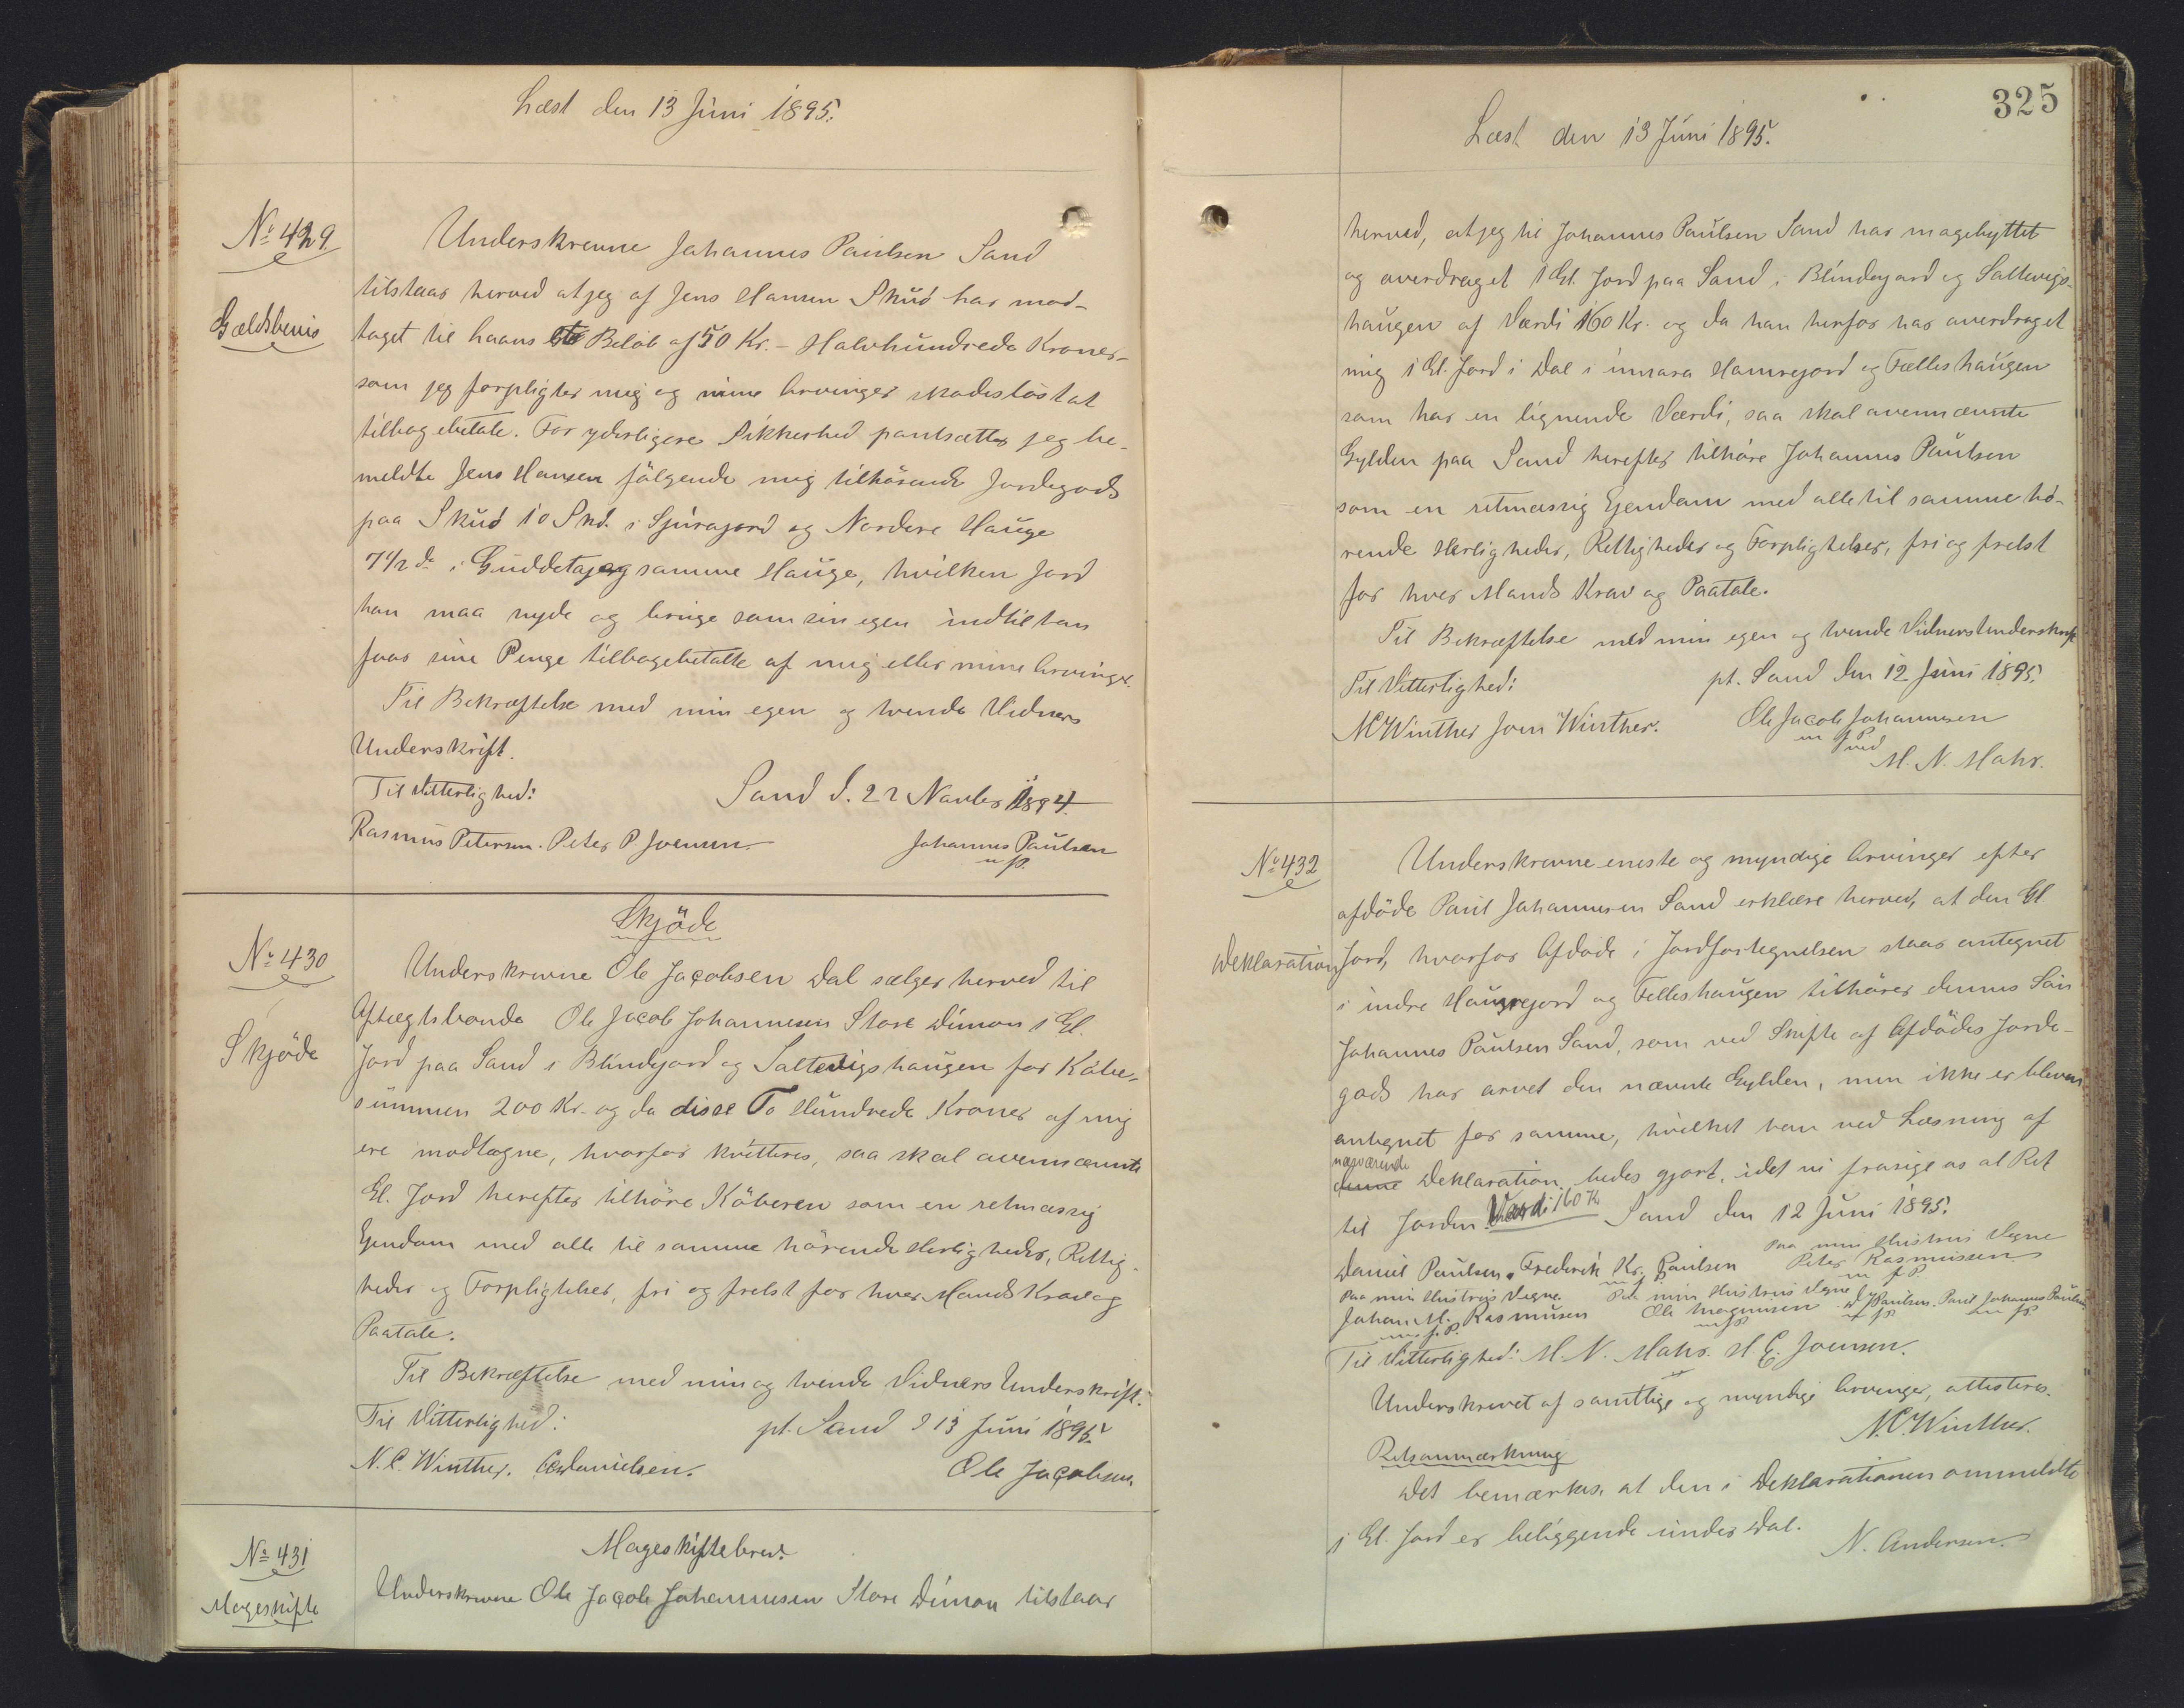 Læst den 13 Juni 1895.
No 429.
Gældsbevis
Underskrevne Johannes Paulsen Sand
tilstaar herved at jeg af Jens Hansen Skuø har mod-
taget til haans Beløb af 50 Kr. - Halvhundrede Kroner -
som jeg forpligter mig og mine Arvinger skadesløst at
tilbagebetale. For yderligere Sikkerhed pantsætter jeg be-
meldte Jens Hansen følgende mig tilhørende Jordegods
paa Skuø 10 Skd. i Sjúragjord og Nordere Hauge
7 1/2 do i samme Hauge, hvilken Jord
han maa nyde og bruge som sin egen indtil han
faar sine Penge tilbagebetalte af mig eller mine Arvinger.
Til Bekræftelse med min egen og tvende Vidners
Underskrift.
Til Vitterlighed:
Sand d. 22 Novbr 1894.
Rasmus Petersen. Peter P. Joensen.
Johannes Paulsen
m f P.
No 430
Skjöde
Skjöde
Underskrevne Ole Jacobsen Dal sælger herved til
Aftægtsbonde Ole Jacob Johannesen Store Dimon 1 Gl.
Jord paa Sand i Blindegjord og Saltevigshaugen for Købe-
summen 200 Kr. og da disse To Hundrede Kroner af mig
ere modtagne, hvorfor kvitteres, saa skal ovennævnte
Gl. Jord herefter tilhöre Köberen som en retmæssig
Ejendom med alle til samme hörende Herligheder, Rettig-
heder og Forpligtelser, fri og frelst for hver Mands Krav og
Paatale.
Til Bekræftelse med min og tvende Vidners Underskrift.
Til Vitterlighed:
pt. Sand d 13 Juni 1895.
N. C. Winther. Danielsen.
Ole Jacobsen.
No 431
Mageskifte
Mageskiftebrev.
Underskrevne Ole Jacob Johannesen Store Dimon tilstaar
325
Læst den 13 Juni 1895.
herved, at jeg til Johannes Paulsen Sand har magebyttet
og overdraget 1 Gl. Jord paa Sand i Blindegjord og Saltevigs-
haugen af Værdi 160 Kr. og da han herfor har overdraget
mig 1 Gl. Jord i Dal i innara Hamregjord og Fælleshaugen
som har en lignende Værdi, saa skal ovennævnte
Gylden paa Sand herefter tilhøre Johannes Paulsen
som en retmæssig Ejendom med alle til samme hø-
rende Herligheder, Rettigheder og Forpligtelser, fri og frelst
for hver Mands Krav og Paatale.
Til Bekræftelse med min egen og tvende Vidners Underskrift
Til Vitterlighed:
pt. Sand den 12 Juni 1895.
NC Winther Joen Winther.
Ole Jacob Johannesen
m f P
ved
M. N. Mohr.
No 432
Deklaration
Underskrevne eneste og myndige Arvinger efter
afdöde Poul Johannesen Sand erklære herved, at den Gl.
Jord, hvorfor Afdøde i Jordfortegnelsen staar antegnet
i indre Hamregjord og Felleshaugen tilhører dennes Sön
Johannes Paulsen Sand, som ved Skifte af Afdödes Jorde-
gods har arvet den nævnte Gylden, men ikke er bleven
antegnet for samme, hvilket han ved Læsning af
nærværende
denne Deklaration bedes gjort, idet vi frasige os al Ret
til Jorden. Værdi 160 Kr Sand den 12 Juni 1895.
paa min Hustrus Vegne
Daniel Paulsen. Frederik Kr. Paulsen Peter Rasmussen
m f P m f P
paa min Hustrus Vegne. Paa min Hustrus Vegne
Johan M. Rasmusen Ole Magnusen J Paulsen. Poul Johannes Paulsen
m f. P. m f P m f P m f P.
Til Vitterlighed: M. N. Mohr. H E. Joensen.
Underskrevet af samtlige og myndige Arvinger, attesteres.
N.C. Winther.
Retsanmærkning
Det bemærkes, at den i Deklarationen ommeldte
1 Gl. Jord er beliggende under Dal.
N. Andersen.